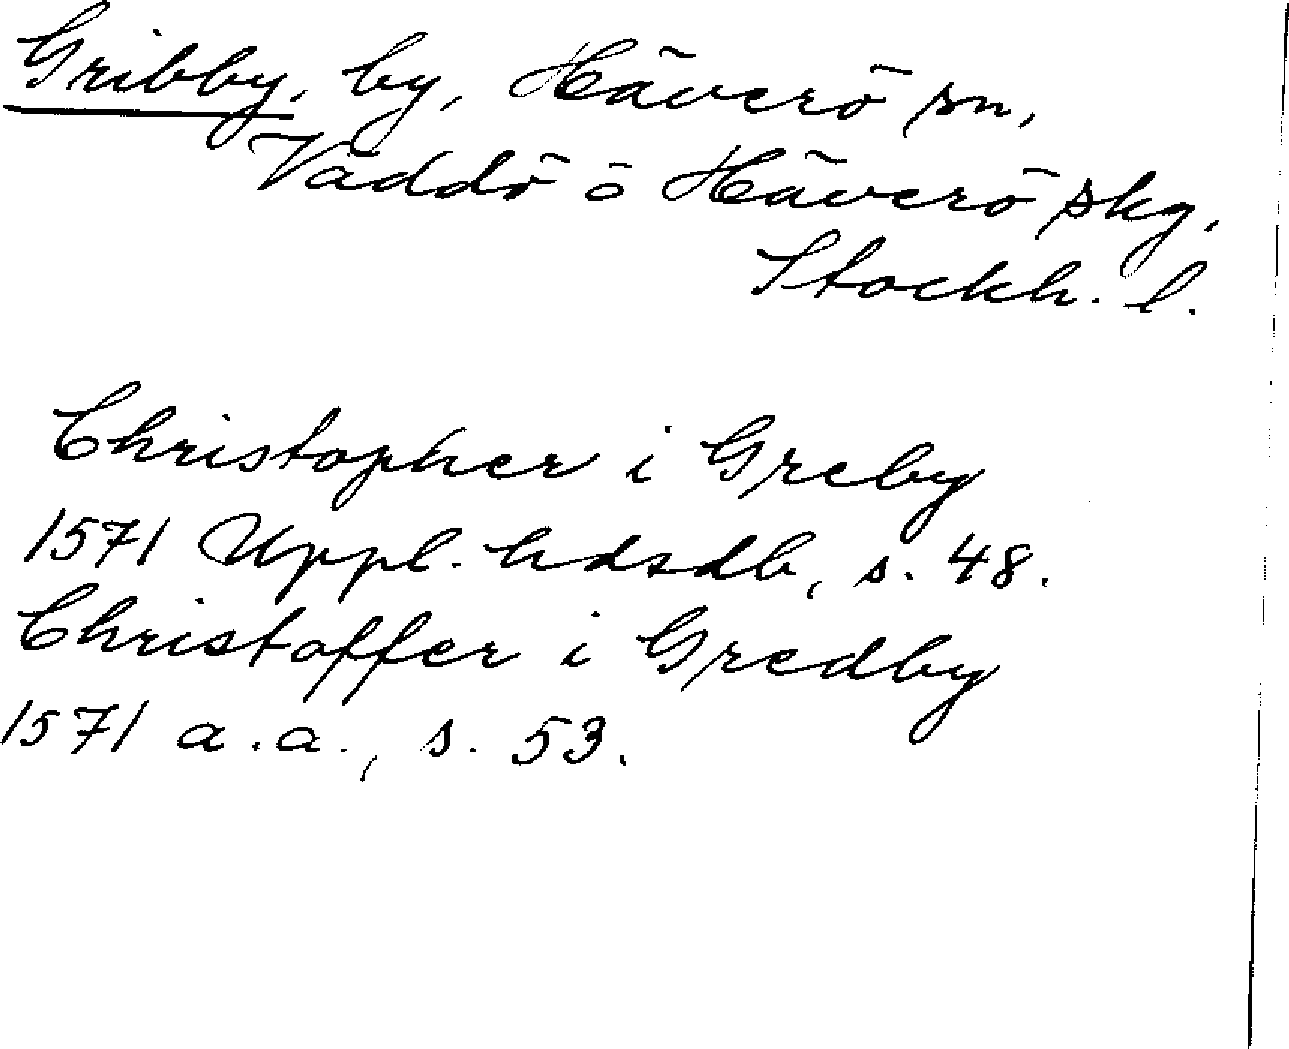 Gribby, by, Häverö sn,
Väddö o Häverö skg,
Stockh. l.
Christopher i Greby
1571 Uppl. hdsdb, s. 48.
Christoffer i Gredby
1571 a.a., s. 53.